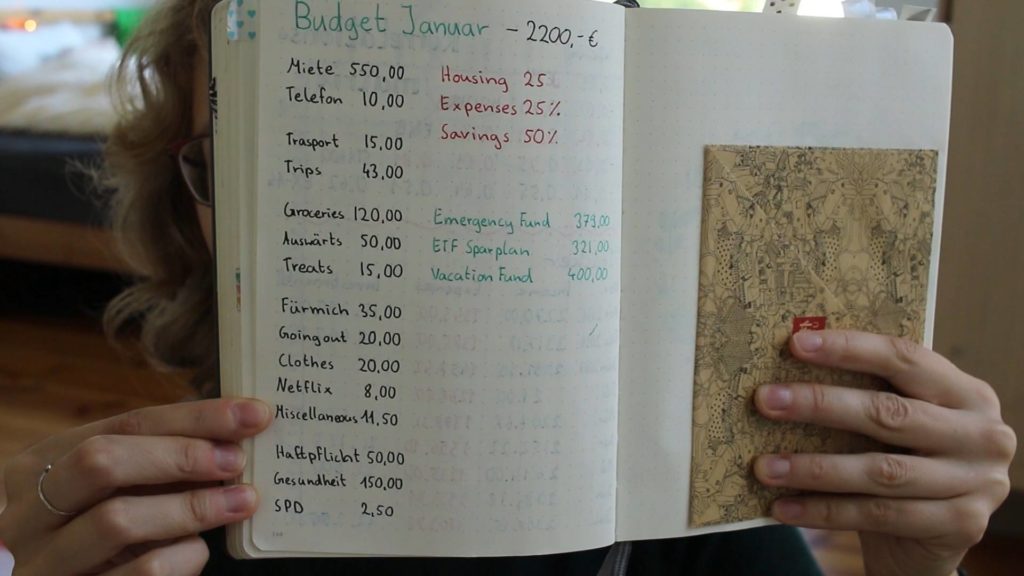 Budget Januar - 2200,-€
Miete 550,00
Telefon 10,00
Trasport 15,00
Trips 43,00
Groceries 120,00
Auswärts 50,00
Treats 15,00
Fürmich 35,00
Goingout 20,00
Clothes 20,00
Netflix 8,00
Miscellaneous 11,50
Haftpflicht 50,00
Gesundheit 150,00
SPD 2,50
Housing 25
Expenses 25%
Savings 50%
Emergency Fund 379,00
ETF Sparplan 321,00
Vacation Fund 400,00